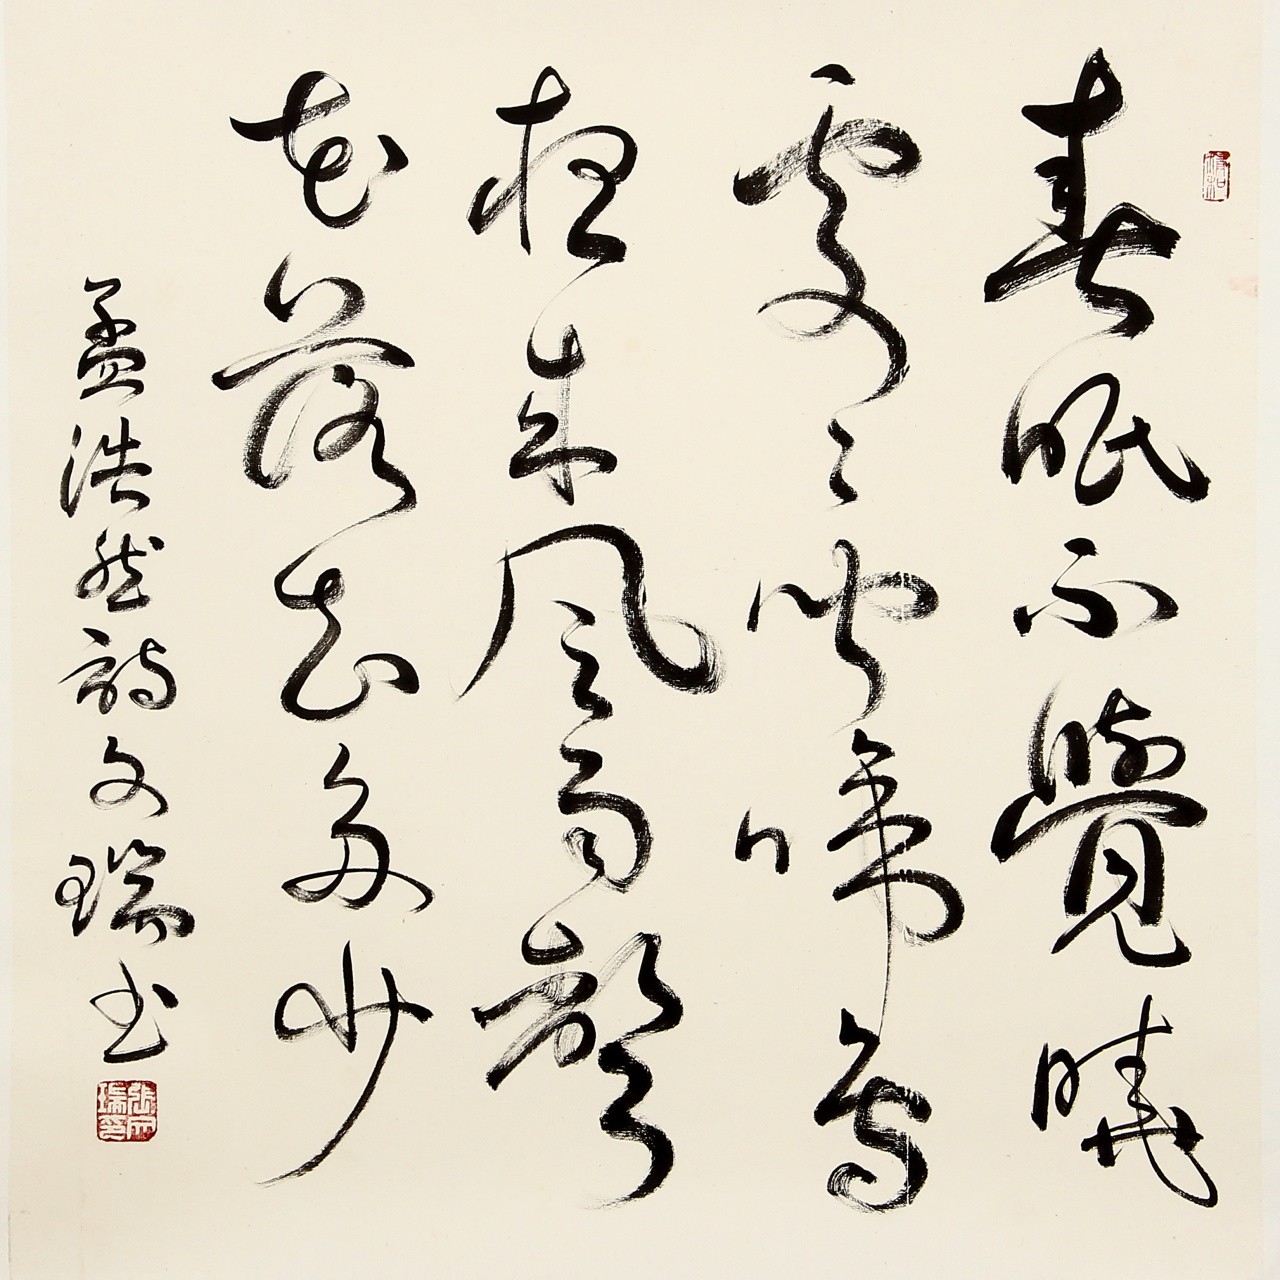 春眠不覺曉
處々聞啼鳥
夜来風雨聲
花落知多少
孟浩然詩文瑞书
張文瑞印